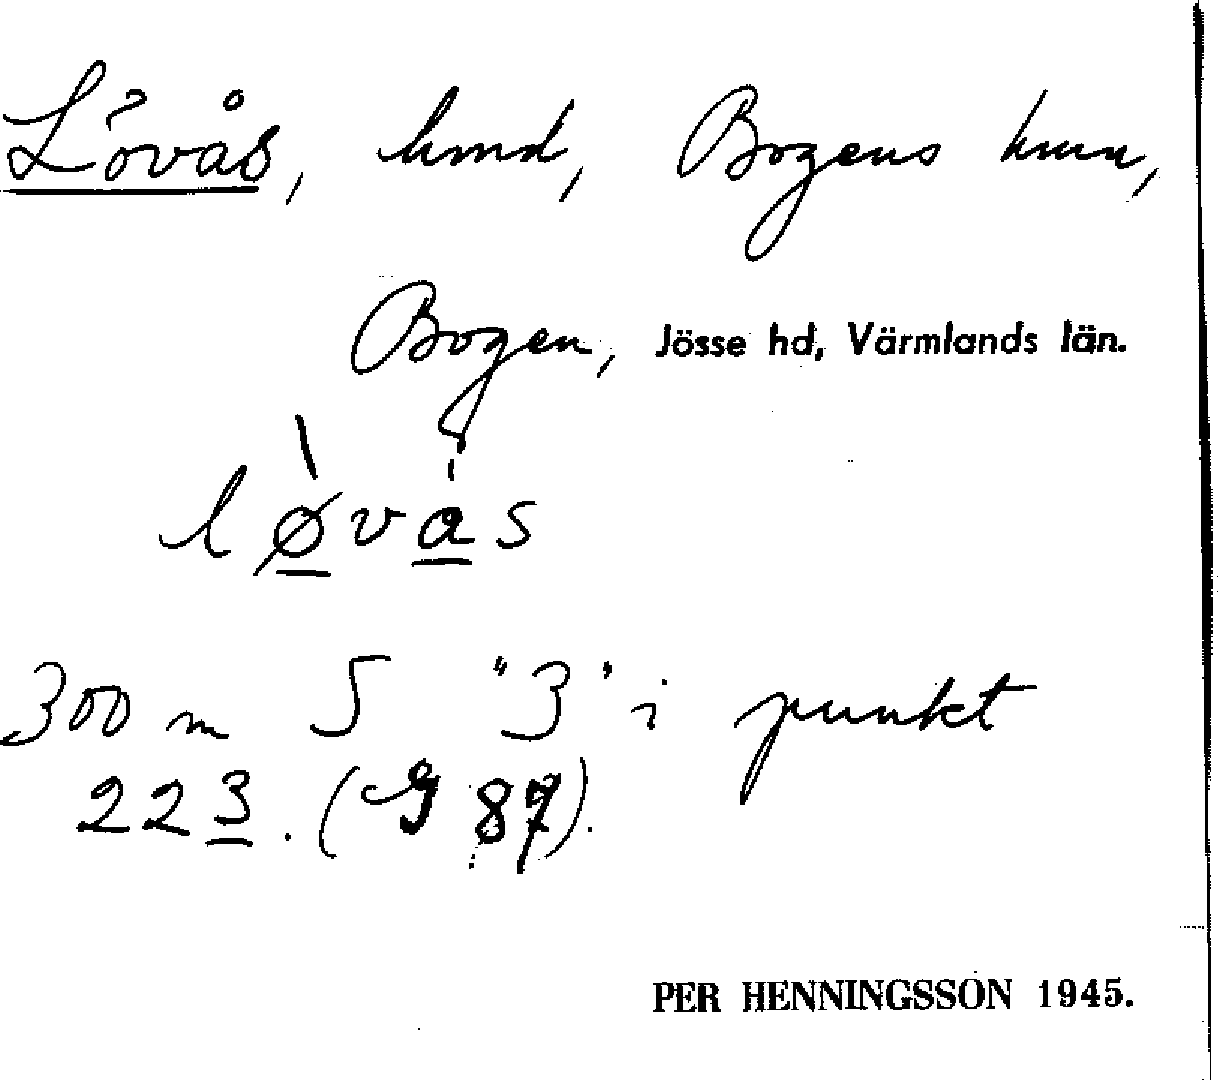 Lövås, hmd, Bogens kmn,
Bogen, Jösse hd, Värmlands län.
lø̀vås
300 m S "3" i punkt
223. (G 87).
PER HENNINGSSON 1945.